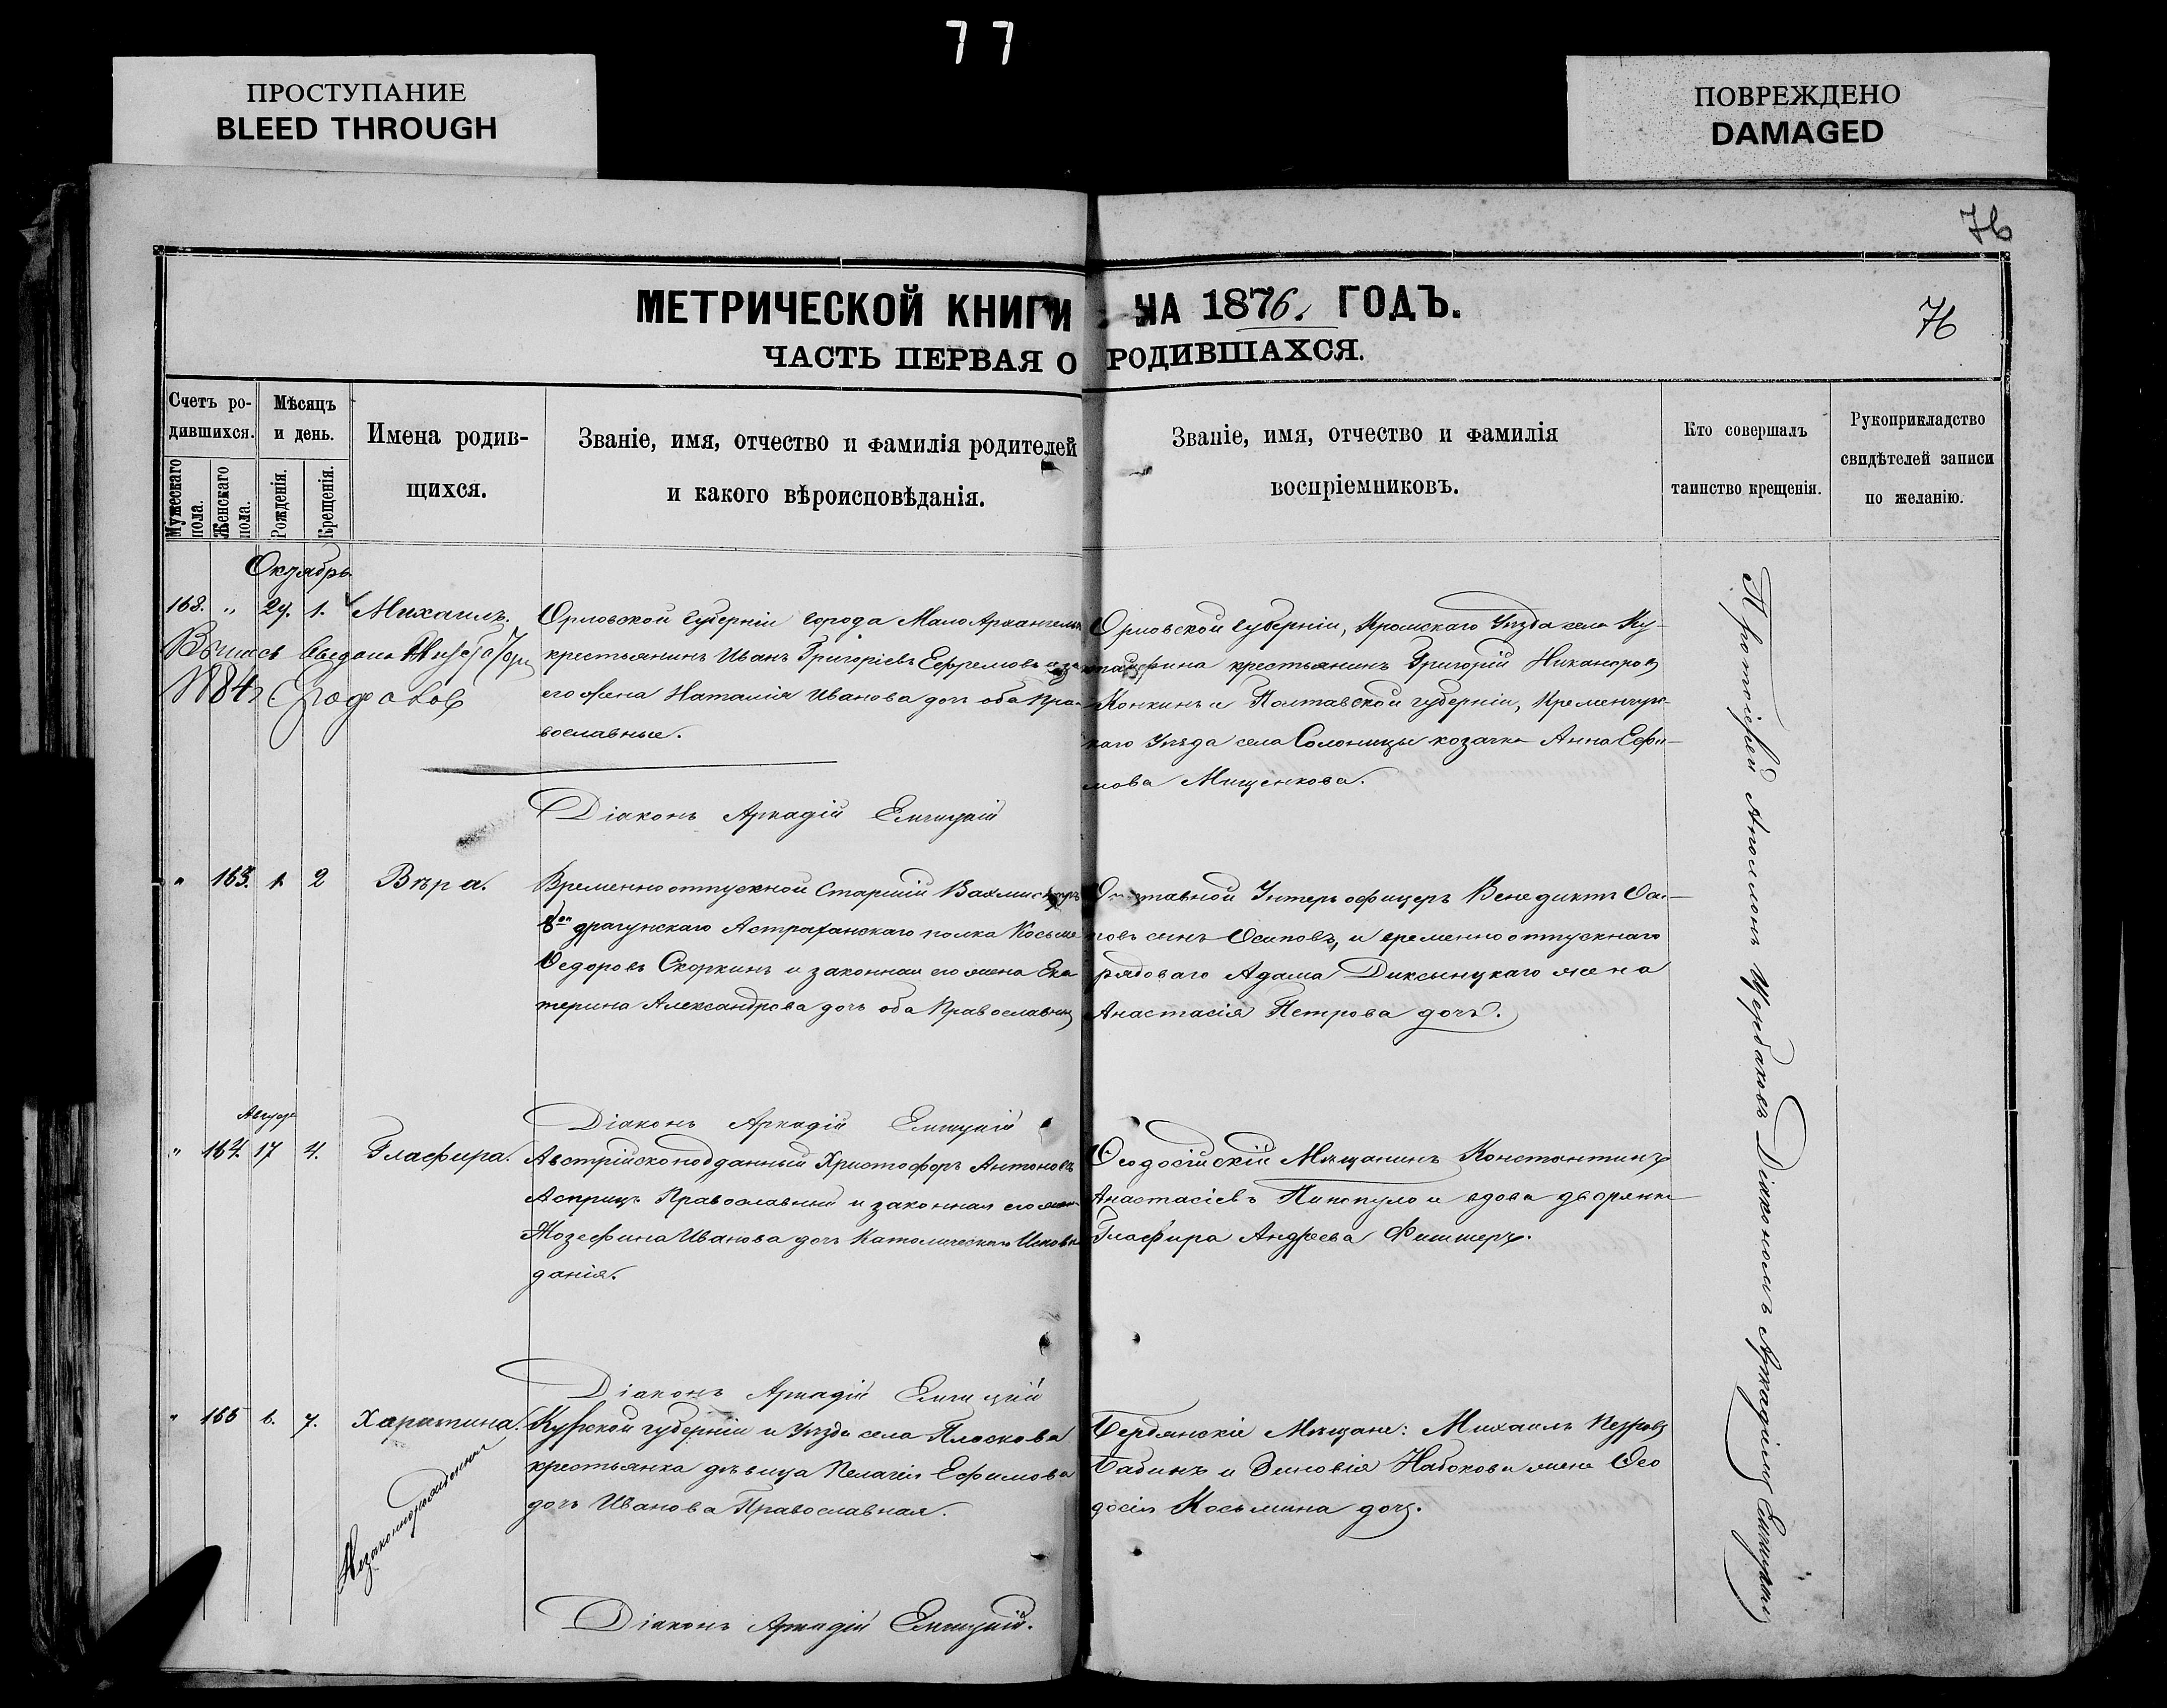 77
ПРОСТУПАНИЕ
BLEED THROUGH
ПОВРЕЖДЕНО
DAMAGED
76
76
МЕТРИЧЕСКОЙ КНИГИ НА 1876. ГОДЪ.
ЧАСТЬ ПЕРВАЯ О РОДИВШАХСЯ.
Счетъ ро-
дившихся.
Мужескаго пола.
Женскаго пола.
Мѣсяцъ
и день.
Рожденія.
Крещенія.
Имена родив-
щихся.
Званіе, имя, отчество и фамилія родителей
и какого вѣроисповѣданія.
Званіе, имя, отчество и фамилія
воспріемниковъ.
Кто совершалъ
таинство крещенія.
Рукоприкладство
свидѣтелей записи
по желанію.
Октябрь
168. " 29. 1. Михаилъ.
Орловской губерніи города Мало Архангельска
крестьянинъ Иванъ Григоріевъ Ефремовъ и
его жена Наталія Иванова дочь оба Пра-
вославные.
Орловской губерніи, Кромскаго Уѣзда села Ку-
крестьянинъ Григорій Никаноровъ
Конкинъ и Полтавской губерніи, Кременчуг-
скаго Уѣзда села Солоницы козачка Анна Ефи-
мова Мищенкова.
Діаконъ Аркадій Емицкій
" 163. 1. 2 Вѣра.
Временно отпускной Старшій Вахмистръ
8го драгунскаго Астраханскаго полка Косьма
Ѳедоровъ Скоркинъ и законная его жена Ека
терина Александрова дочь оба Православны
Отставной Унтеръ офицеръ Венедиктъ Оси-
повъ сынъ Осиповъ, и временно отпускнаго
рядоваго Адама Диксинцкаго жена
Анастасія Петрова дочь.
Діаконъ Аркадій Емицкій
Август
" 164. 17 4. Глафира.
Австрійскоподданный Христофоръ Антоновъ
Асприцъ Православный и законная его жена
Жозефина Иванова дочь Католическаго Исповѣ
данія.
Ѳеодосійскій Мѣщанинъ Константинъ
Анастасіевъ и вдова дворянка
Глафира Андреева Фишеръ.
Діаконъ Аркадій Емицкій
" 165 6. 7. Харитина.
Незаконнорожденная
Курской губерніи и Уѣзда села Плоскова
крестьянка дѣвица Пелагея Ефимова
дочь Иванова Православная.
Бердянскіе Мѣщане: Михаилъ Петровъ
Бабинъ и Зиновія Набокова жена Ѳео
досія Косьмина дочь.
Діаконъ Аркадій Емицкій.
Протоіерей Аполлонъ Щербаковъ Діакономъ Аркадіемъ Емицкимъ